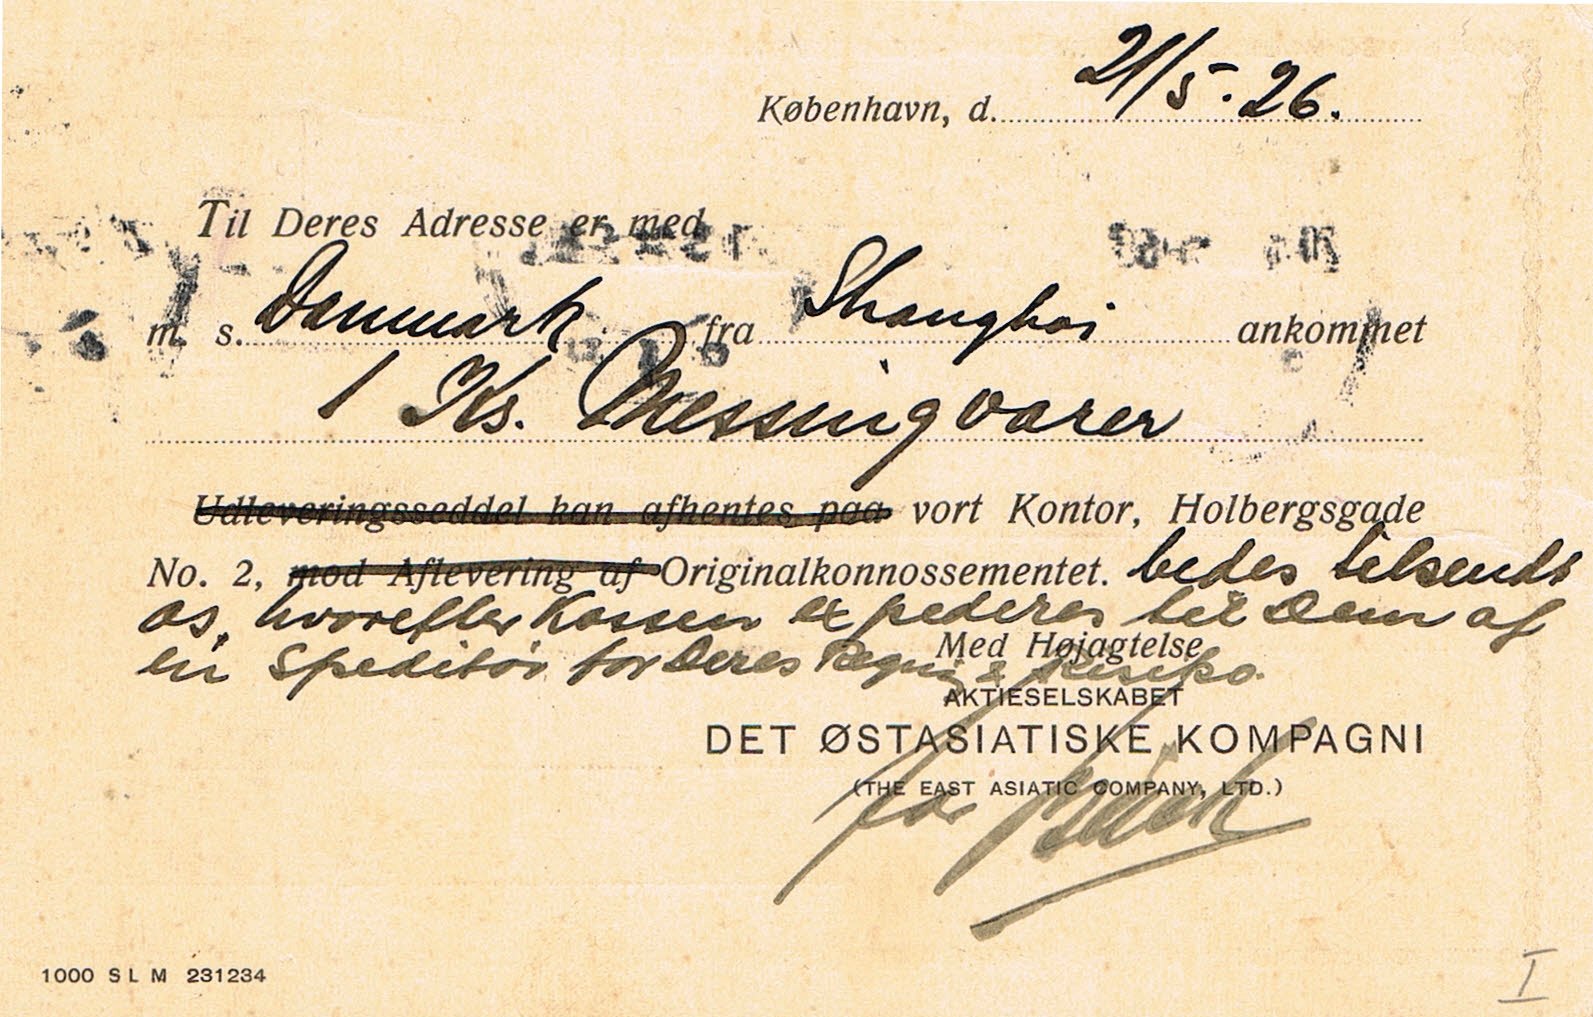 København, d. 21/5.26.
Til Deres Adresse er med
m. s. Danmark fra Shanghai ankommet
1 Ks. Messingvarer
Udleveringsseddel kan afhentes paa vort Kontor, Holbergsgade
No. 2, mod Aflevering af Originalkonnossementet. bedes tilsendt
os, hvorefter Kassen expederes til Dem af
en Speditør for Deres Regning & Risiko.
Med Højagtelse
AKTIESELSKABET
DET ØSTASIATISKE KOMPAGNI
(THE EAST ASIATIC COMPANY, LTD.)
1000 S L M 231234
I